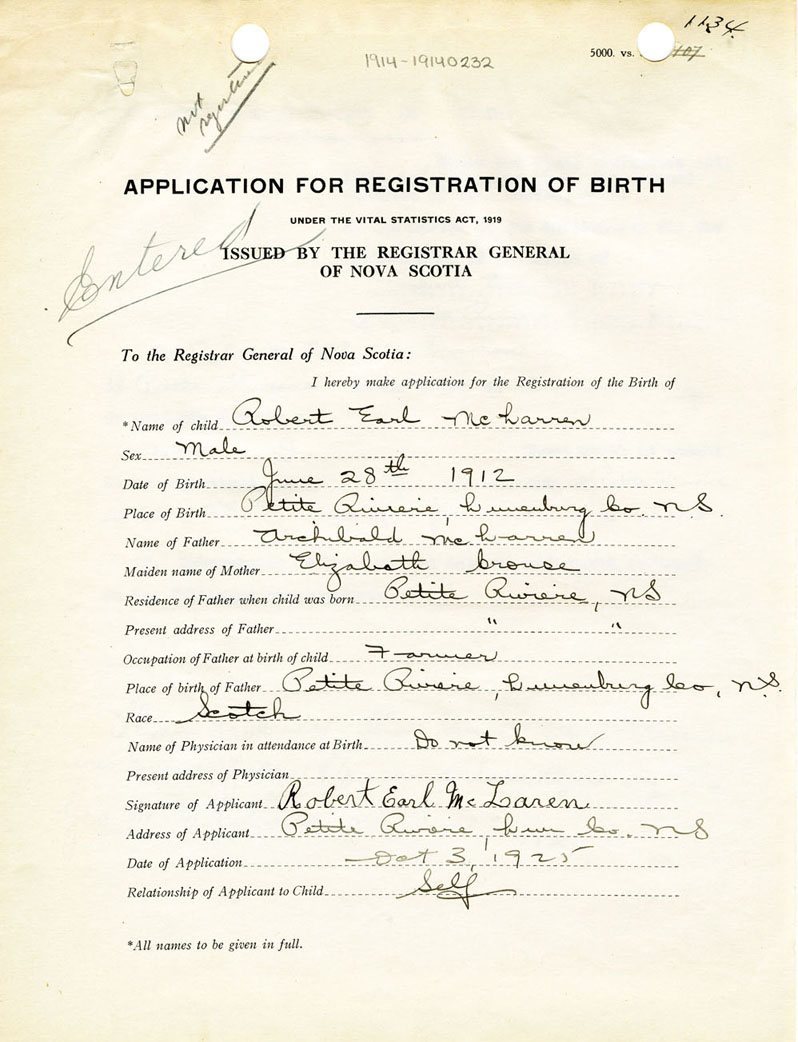 1134.
1914-19140232
5000. vs. 107
not
registered
APPLICATION FOR REGISTRATION OF BIRTH
UNDER THE VITAL STATISTICS ACT, 1919
Entered
ISSUED BY THE REGISTRAR GENERAL
OF NOVA SCOTIA
To the Registrar General of Nova Scotia:
I hereby make application for the Registration of the Birth of
*Name of child Robert Earl McLarren
Sex Male
Date of Birth June 28th 1912
Place of Birth Petite Riviere, Lunenburg Co. N.S.
Name of Father Archibald McLarren
Maiden name of Mother Elizabeth Crouse
Residence of Father when child was born Petite Riviere, NS
Present address of Father " "
Occupation of Father at birth of child Farmer
Place of birth of Father Petite Riviere, Lunenburg Co, N.S.
Race Scotch
Name of Physician in attendance at Birth Do not know
Present address of Physician
Signature of Applicant Robert Earl McLaren
Address of Applicant Petite Riviere, Lun Co. NS
Date of Application Oct 3, 1925
Relationship of Applicant to Child Self
*All names to be given in full.